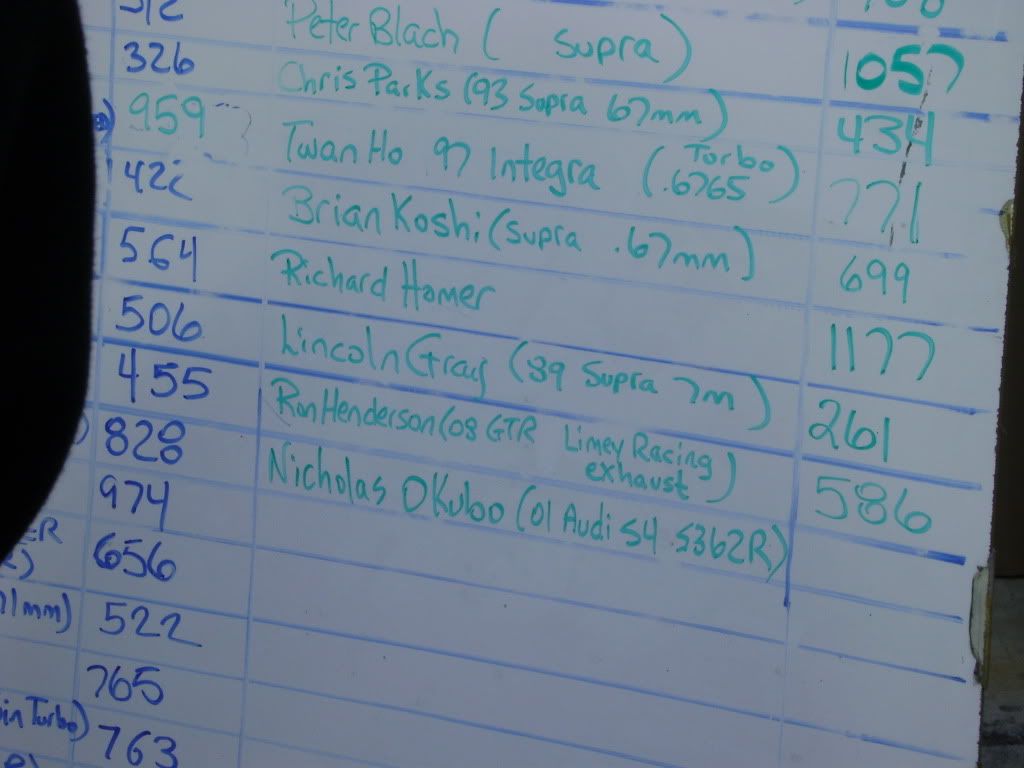 Peter Blach ( Supra ) 1057
326 Chris Parks (93 Supra 67mm) 434
959 Twan Ho 97 Integra (Turbo .6765) 771
Brian Koshi (Supra .67mm) 699
564 Richard Homer 1177
506 Lincoln Gray (89 Supra 7m) 261
455 Ron Henderson (08 GTR Limey Racing exhaust) 586
828 Nicholas OKubo (01 Audi S4 S362R)
974
656
mm) 522
765
Turbo) 763